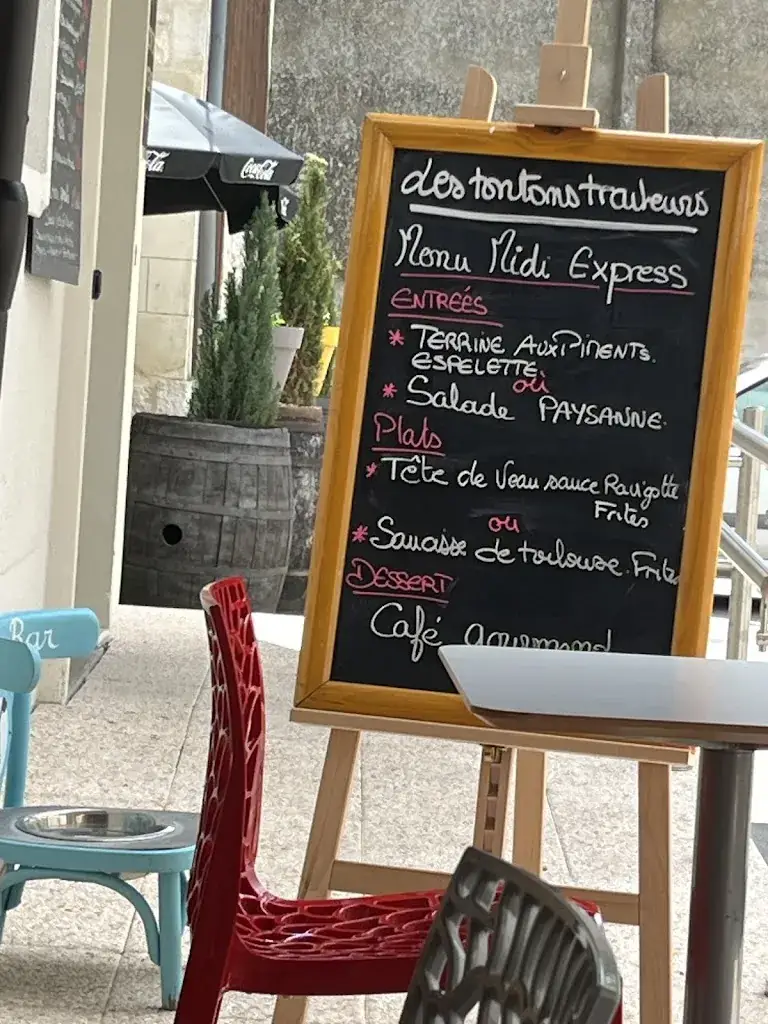 Coca-Cola
des tontons traiteurs
Menu Midi Express
ENTREÉS
* TERRINE AUX PIMENTS.
ESPELETTE.
ou
* Salade PAYSANNE.
Plats
* Tête de Veau sauce Ravigotte
Frites
ou
* Saucisse de toulouse. Frites
DESSERT
Café gourmand
Bar